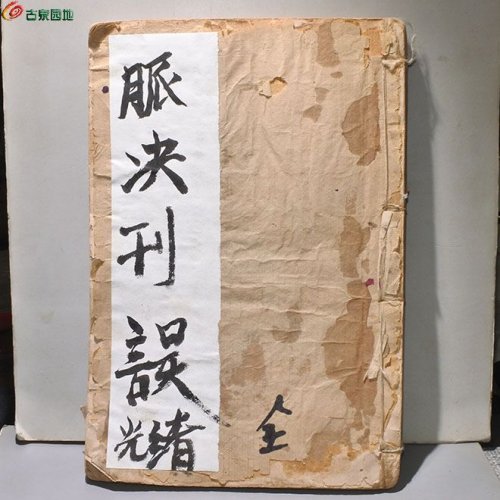 古泉园地
脈决刊誤
光绪
全